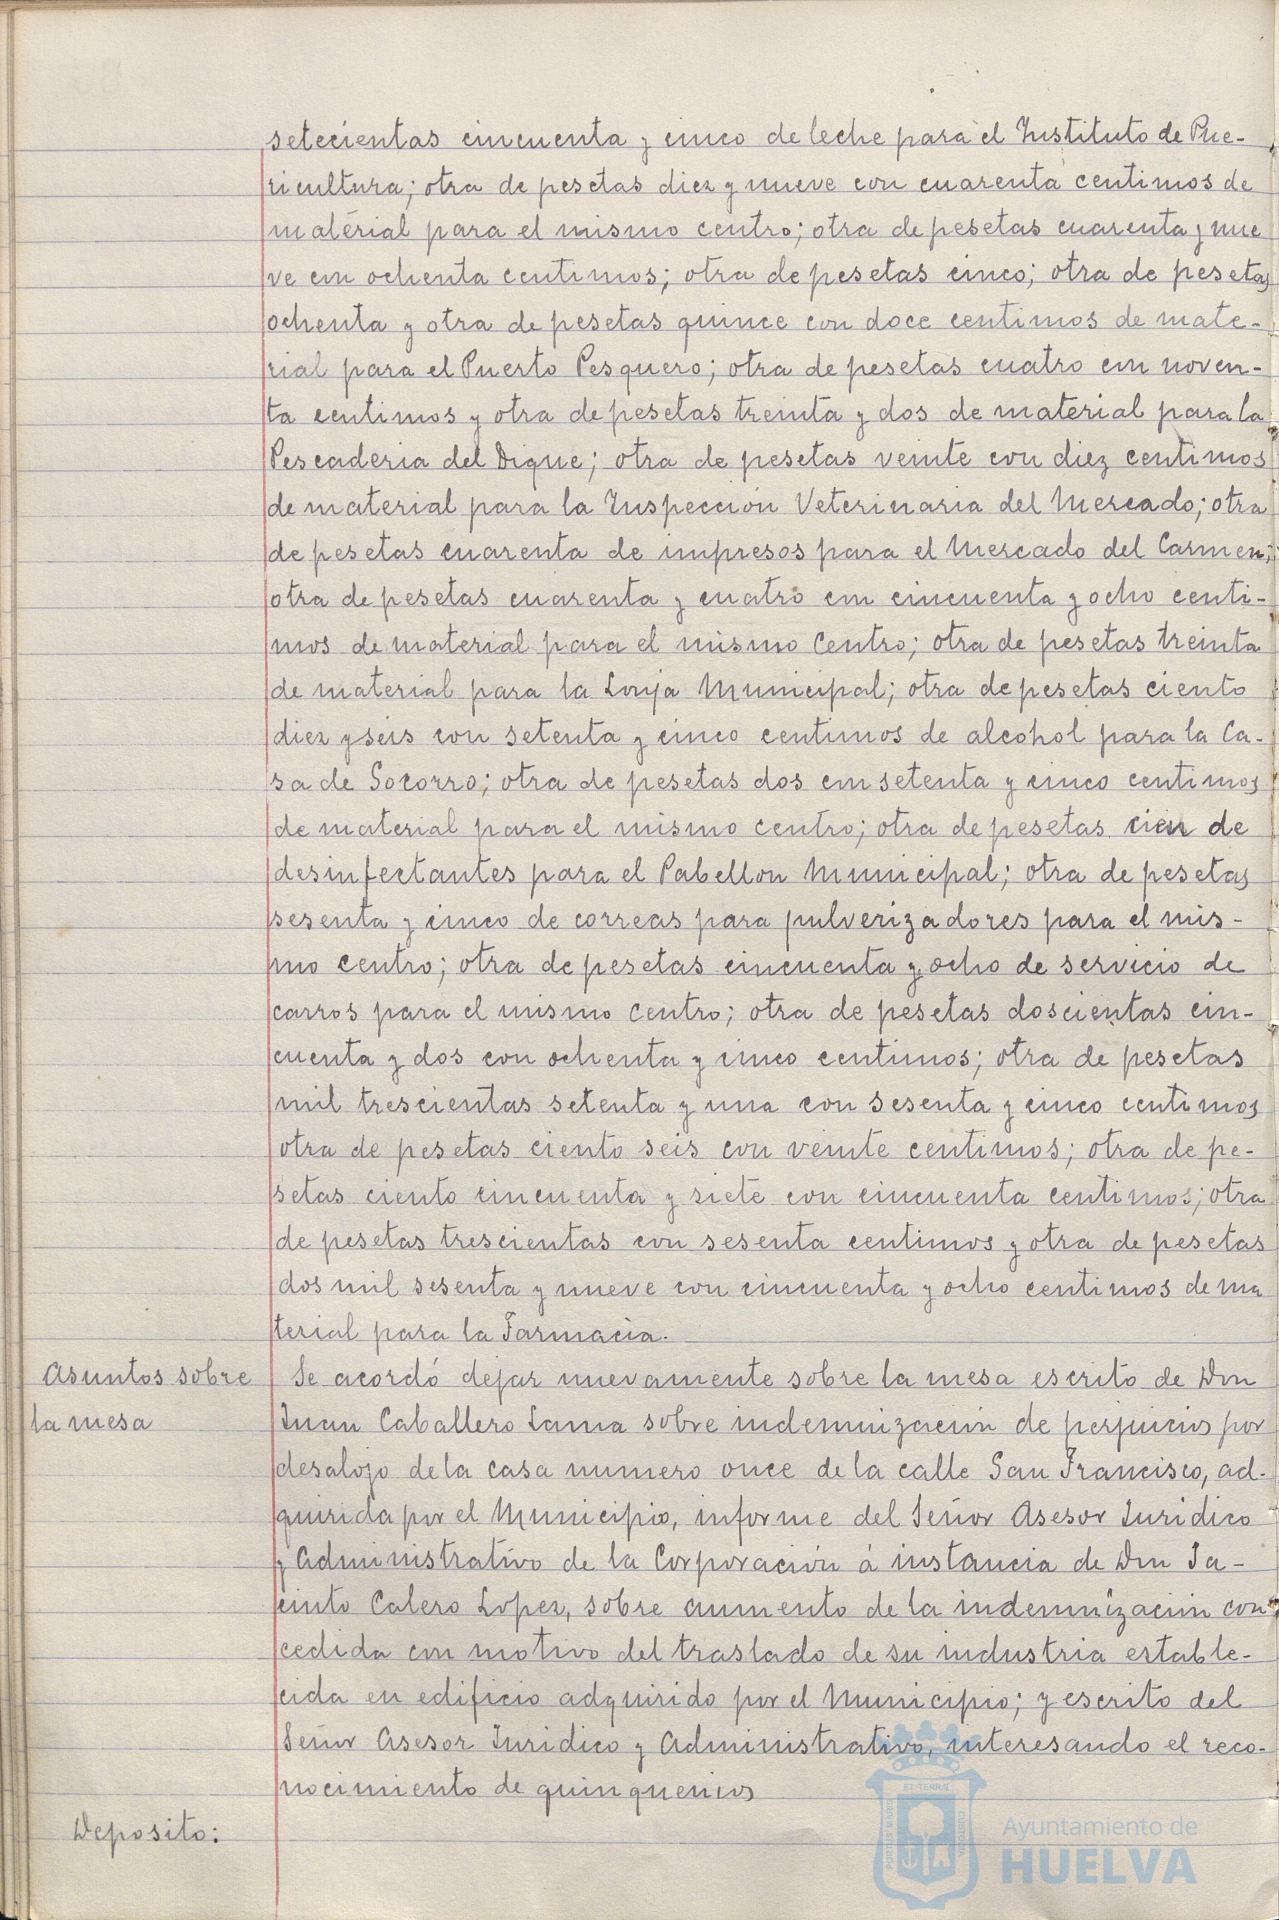 setecientas cincuenta y cinco de leche para el Instituto de Pue-
ricultura; otra de pesetas diez y nueve con cuarenta centimos de
material para el mismo centro; otra de pesetas cuarenta y nue
ve con ochenta centimos; otra de pesetas cinco; otra de pesetas
ochenta y otra de pesetas quince con doce centimos de mate-
rial para el Puerto Pesquero; otra de pesetas cuatro con noven-
ta centimos y otra de pesetas treinta y dos de material para la
Pescaderia del Dique; otra de pesetas veinte con diez centimos
de material para la Inspección Veterinaria del Mercado; otra
de pesetas cuarenta de impresos para el Mercado del Carmen;
otra de pesetas cuarenta y cuatro con cincuenta y ocho centi-
mos de material para el mismo Centro; otra de pesetas treinta
de material para la Lonja Municipal; otra de pesetas ciento
diez y seis con setenta y cinco centimos de alcohol para la Ca-
sa de Socorro; otra de pesetas dos con setenta y cinco centimos
de material para el mismo centro; otra de pesetas cien de
desinfectantes para el Pabellon Municipal; otra de pesetas
sesenta y cinco de correas para pulverizadores para el mis-
mo centro; otra de pesetas cincuenta y ocho de servicio de
carros para el mismo Centro; otra de pesetas doscientas cin-
cuenta y dos con ochenta y cinco centimos; otra de pesetas
mil trescientas setenta y una con sesenta y cinco centimos
otra de pesetas ciento seis con veinte centimos; otra de pe-
setas ciento cincuenta y siete con cincuenta centimos; otra
de pesetas trescientas con sesenta centimos y otra de pesetas
dos mil sesenta y nueve con cincuenta y ocho centimos de ma
terial para la Farmacia.
Asuntos sobre
la mesa
Se acordó dejar nuevamente sobre la mesa escrito de Don
Juan Caballero Lama sobre indemnización de perjuicios por
desalojo de la casa numero once de la calle San Francisco, ad-
quirida por el Municipio, informe del Señor Asesor Juridico
y Administrativo de la Corporación á instancia de Don Ja-
cinto Calero Lopez, sobre aumento de la indemnización con
cedida con motivo del traslado de su industria estable-
cida en edificio adquirido por el Municipio; y escrito del
Señor Asesor Juridico y Administrativo, interesando el reco-
nocimiento de quinquenios
Deposito:
Ayuntamiento de
HUELVA